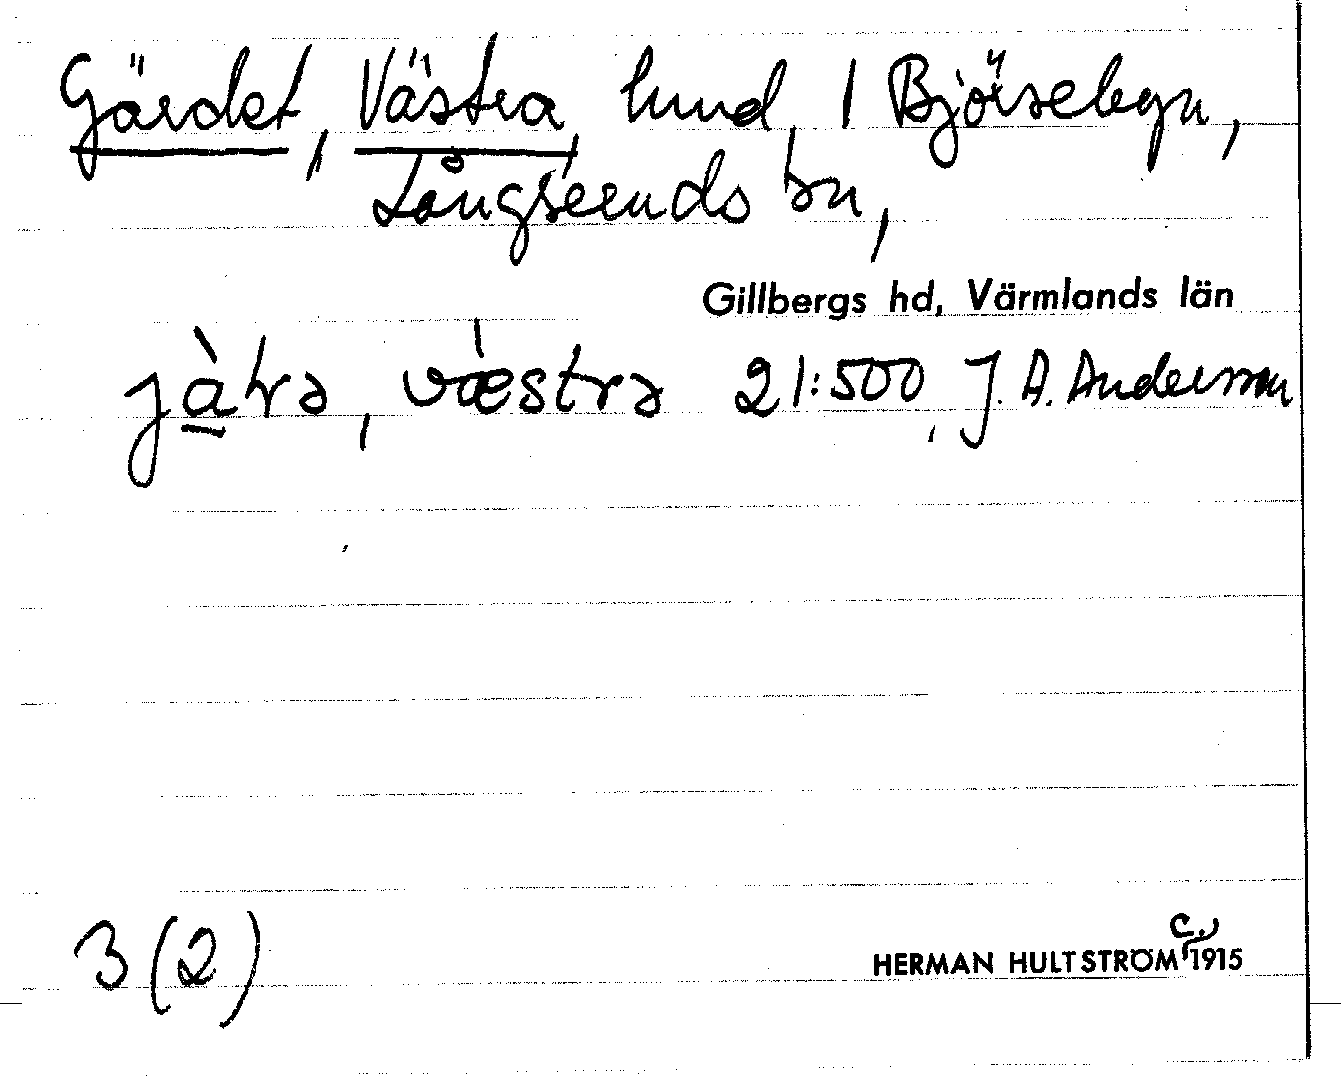 Gärdet, Västra, hmd, 1 Björsebyn,
Långseruds sn,
Gillbergs hd, Värmlands län
jàtrə, væ̀strə 21:500, J. A. Andersson
3(2)
HERMAN HULTSTRÖM c. 1915